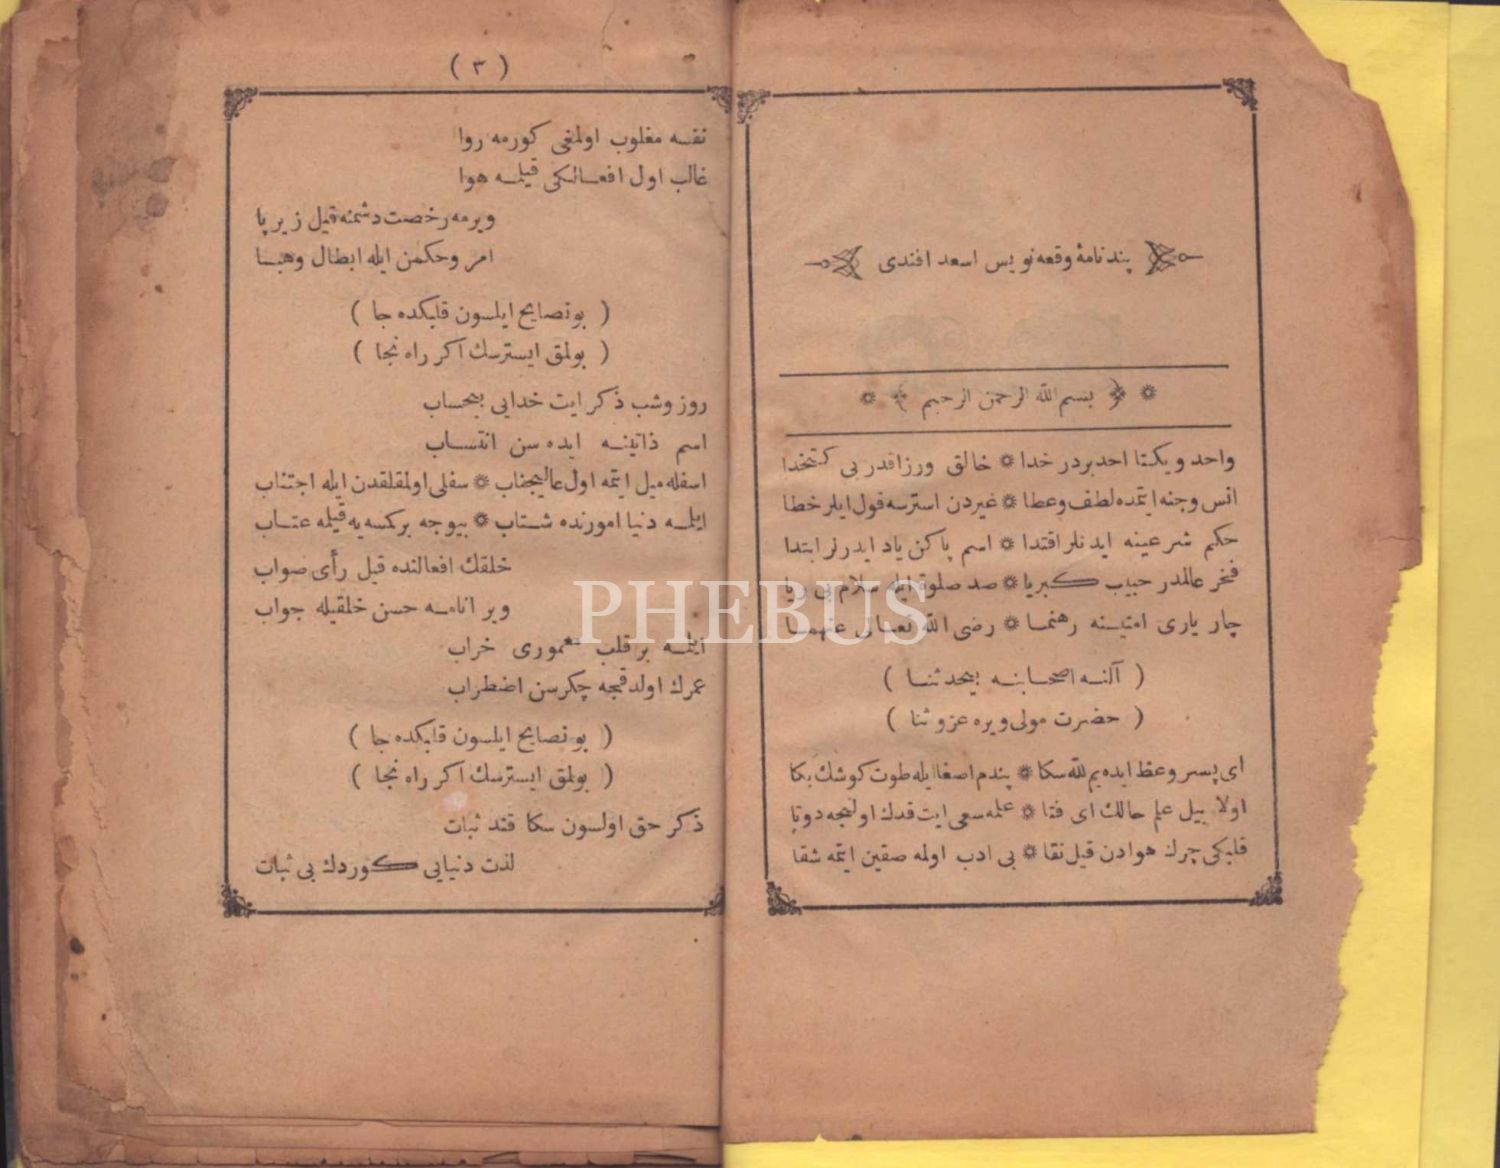 پندنامهٔ وقعه نویس اسعد افندی
بسم الله الرحمن الرحیم
واحد و یکتا احد بردر خدا ❊ خالق ورزاقدر بی کتخدا
انس وجنه ایتمده لطف وعطا ❊ غیردن استرسه قول ایلر خطا
حکم شرعینه ایدنلر اقتدا ❊ اسم پاکن یاد ایدرلر ابتدا
فخر عالمدر حبیب کبریا ❊ صد صلوة ایله سلام بی ریا
چار یاری امتینه رهنما ❊ رضی الله تعالی عنهما
( آلنه اصحابنه بیحد ثنا )
( حضرت مولی ویره عز و ثنا )
ای پسر وعظ ایده یم لله سکا ❊ پندم اصغا ایله طوت کوشك بکا
اولا بیل علم حالك ای فتا ❊ علمه سعی ایت قدك اولنجه دوتا
قلبکی چرك هوادن قیل نقا ❊ بی ادب اولمه صقین ایتمه شقا
( ٣ )
نفسه مغلوب اولمغی کورمه روا
غالب اول افعالکی قیلمه هوا
ویرمه رخصت دشمنه قیل زیر پا
امر وحکمن ایله ابطال وهبا
( بو نصایح ایلسون قلبکده جا )
( بولمق ایسترسك اکر راه نجا )
روز وشب ذکر ایت خدایی بیحساب
اسم ذاتینه ایده سن انتساب
اسفله میل ایتمه اول عالیجناب ❊ سفلی اولمقلقدن ایله اجتناب
ایلمه دنیا امورنده شتاب ❊ بیوجه برکسه یه قیلمه عتاب
خلقك افعالنده قیل رأی صواب
ویر انامه حسن خلقیله جواب
ایلمه بر قلب معموری خراب
عمرك اولدقجه چکرسن اضطراب
( بو نصایح ایلسون قلبکده جا )
( بولمق ایسترسك اکر راه نجا )
ذکر حق اولسون سکا قند ثبات
لذت دنیایی کوردك بی ثبات
PHEBUS